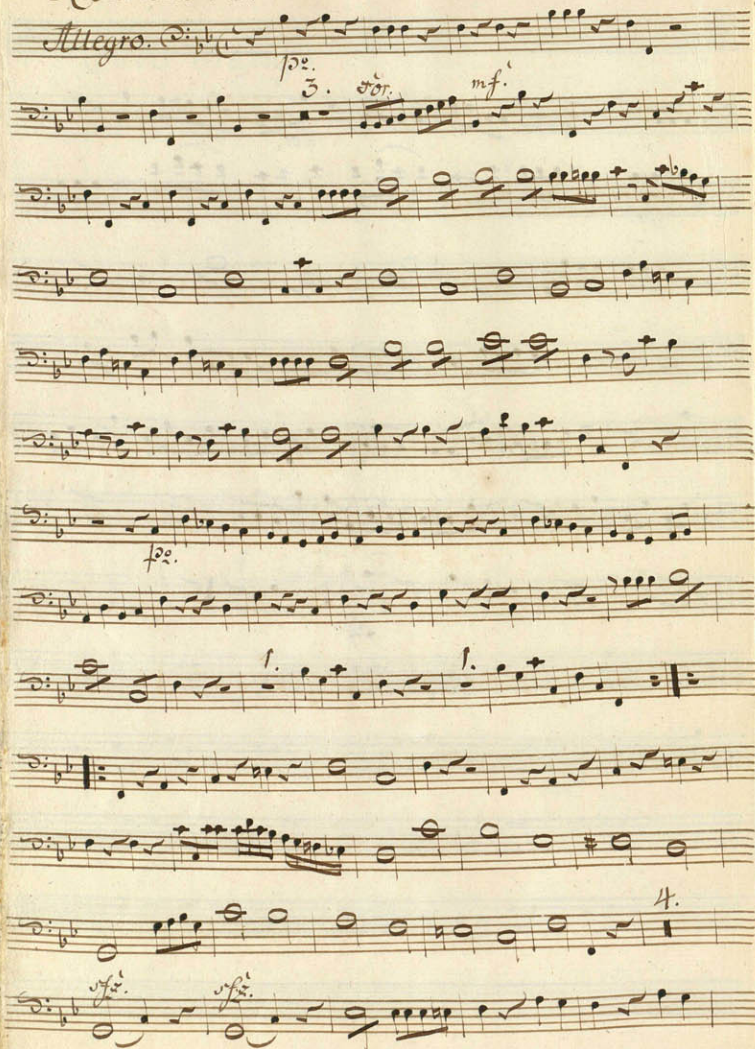 Allegro.
po.
3. for. mf.
po.
1. 1.
4.
sfz. sfz.